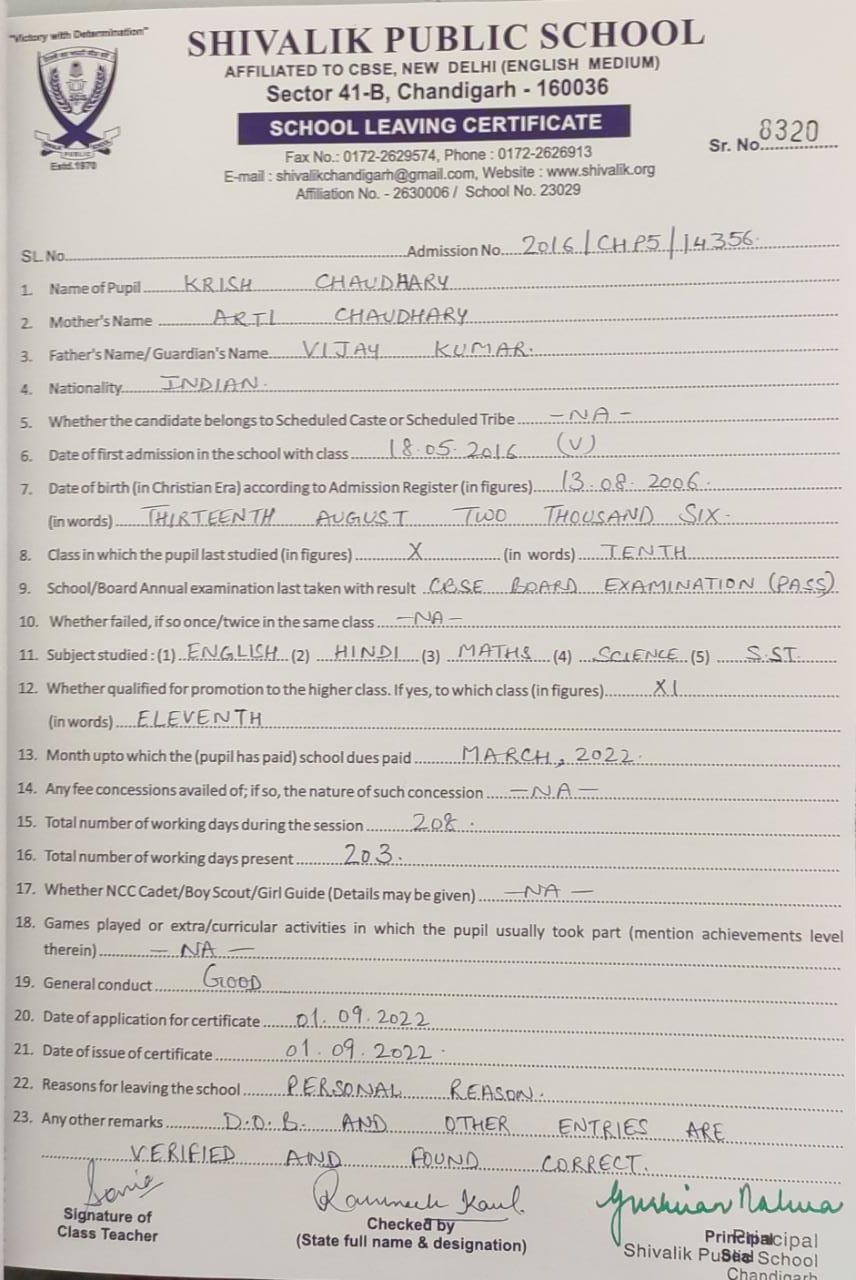 "Victory with Determination"
SHIVALIK PUBLIC SCHOOL
AFFILIATED TO CBSE, NEW DELHI (ENGLISH MEDIUM)
Sector 41-B, Chandigarh - 160036
SCHOOL LEAVING CERTIFICATE
Sr. No. 8320
Estd.1970
Fax No.: 0172-2629574, Phone : 0172-2626913
E-mail : shivalikchandigarh@gmail.com, Website : www.shivalik.org
Affiliation No. - 2630006 / School No. 23029
SL.No. Admission No. 2016/CHP5/14356.
1. Name of Pupil KRISH CHAUDHARY
2. Mother's Name ARTI CHAUDHARY
3. Father's Name/Guardian's Name VIJAY KUMAR.
4. Nationality INDIAN.
5. Whether the candidate belongs to Scheduled Caste or Scheduled Tribe -NA-
6. Date of first admission in the school with class 18.05.2016 (V)
7. Date of birth (in Christian Era) according to Admission Register (in figures) 13.08.2006.
(in words) THIRTEENTH AUGUST TWO THOUSAND SIX.
8. Class in which the pupil last studied (in figures) X (in words) TENTH
9. School/Board Annual examination last taken with result CBSE BOARD EXAMINATION (PASS)
10. Whether failed, if so once/twice in the same class -NA-
11. Subject studied : (1) ENGLISH (2) HINDI (3) MATHS (4) SCIENCE (5) S.ST.
12. Whether qualified for promotion to the higher class. If yes, to which class (in figures) XI
(in words) ELEVENTH
13. Month upto which the (pupil has paid) school dues paid MARCH, 2022.
14. Any fee concessions availed of; if so, the nature of such concession -NA-
15. Total number of working days during the session 208.
16. Total number of working days present 203.
17. Whether NCC Cadet/Boy Scout/Girl Guide (Details may be given) -NA-
18. Games played or extra/curricular activities in which the pupil usually took part (mention achievements level
therein) -NA-
19. General conduct GOOD
20. Date of application for certificate 01.09.2022
21. Date of issue of certificate 01.09.2022.
22. Reasons for leaving the school PERSONAL REASON.
23. Any other remarks D.O.B. AND OTHER ENTRIES ARE
VERIFIED AND FOUND CORRECT.
Signature of
Class Teacher
Checked by
(State full name & designation)
Principal
Seal
Principal
Shivalik Public School
Chandigarh